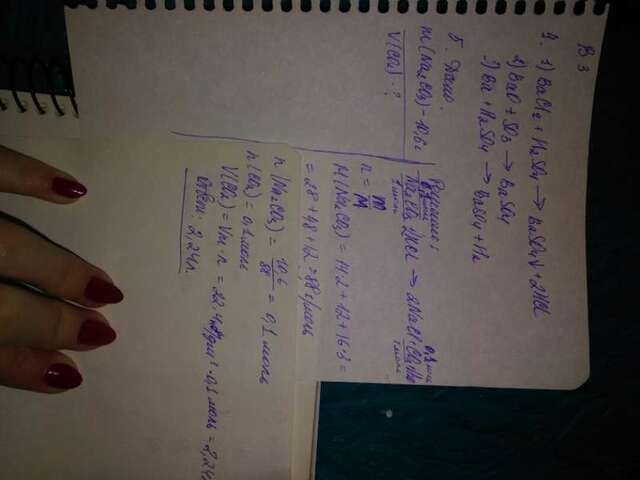 В 3
4. 1) BaCl2 + H2SO4 → BaSO4↓ + 2HCl
2) BaO + SO3 → BaSO4
3) Ba + H2SO4 → BaSO4 + H2
5. Дано:
m(Na2CO3) - 10,6г
V(CO2) - ?
Решение:
0,1 моль
Na2CO3 2HCl → 2NaCl + CO2
1 моль
n = m/M
M(Na2CO3) = 14·2 + 12 + 16·3 =
= 28 + 48 + 12 = 88 г/моль
n(Na2CO3) = 10,6/88 = 0,1 моль
n(CO2) = 0,1 моль
V(CO2) = Vm·n = 22,4 · 0,1 моль = 2,24л
Ответ: 2,24л.